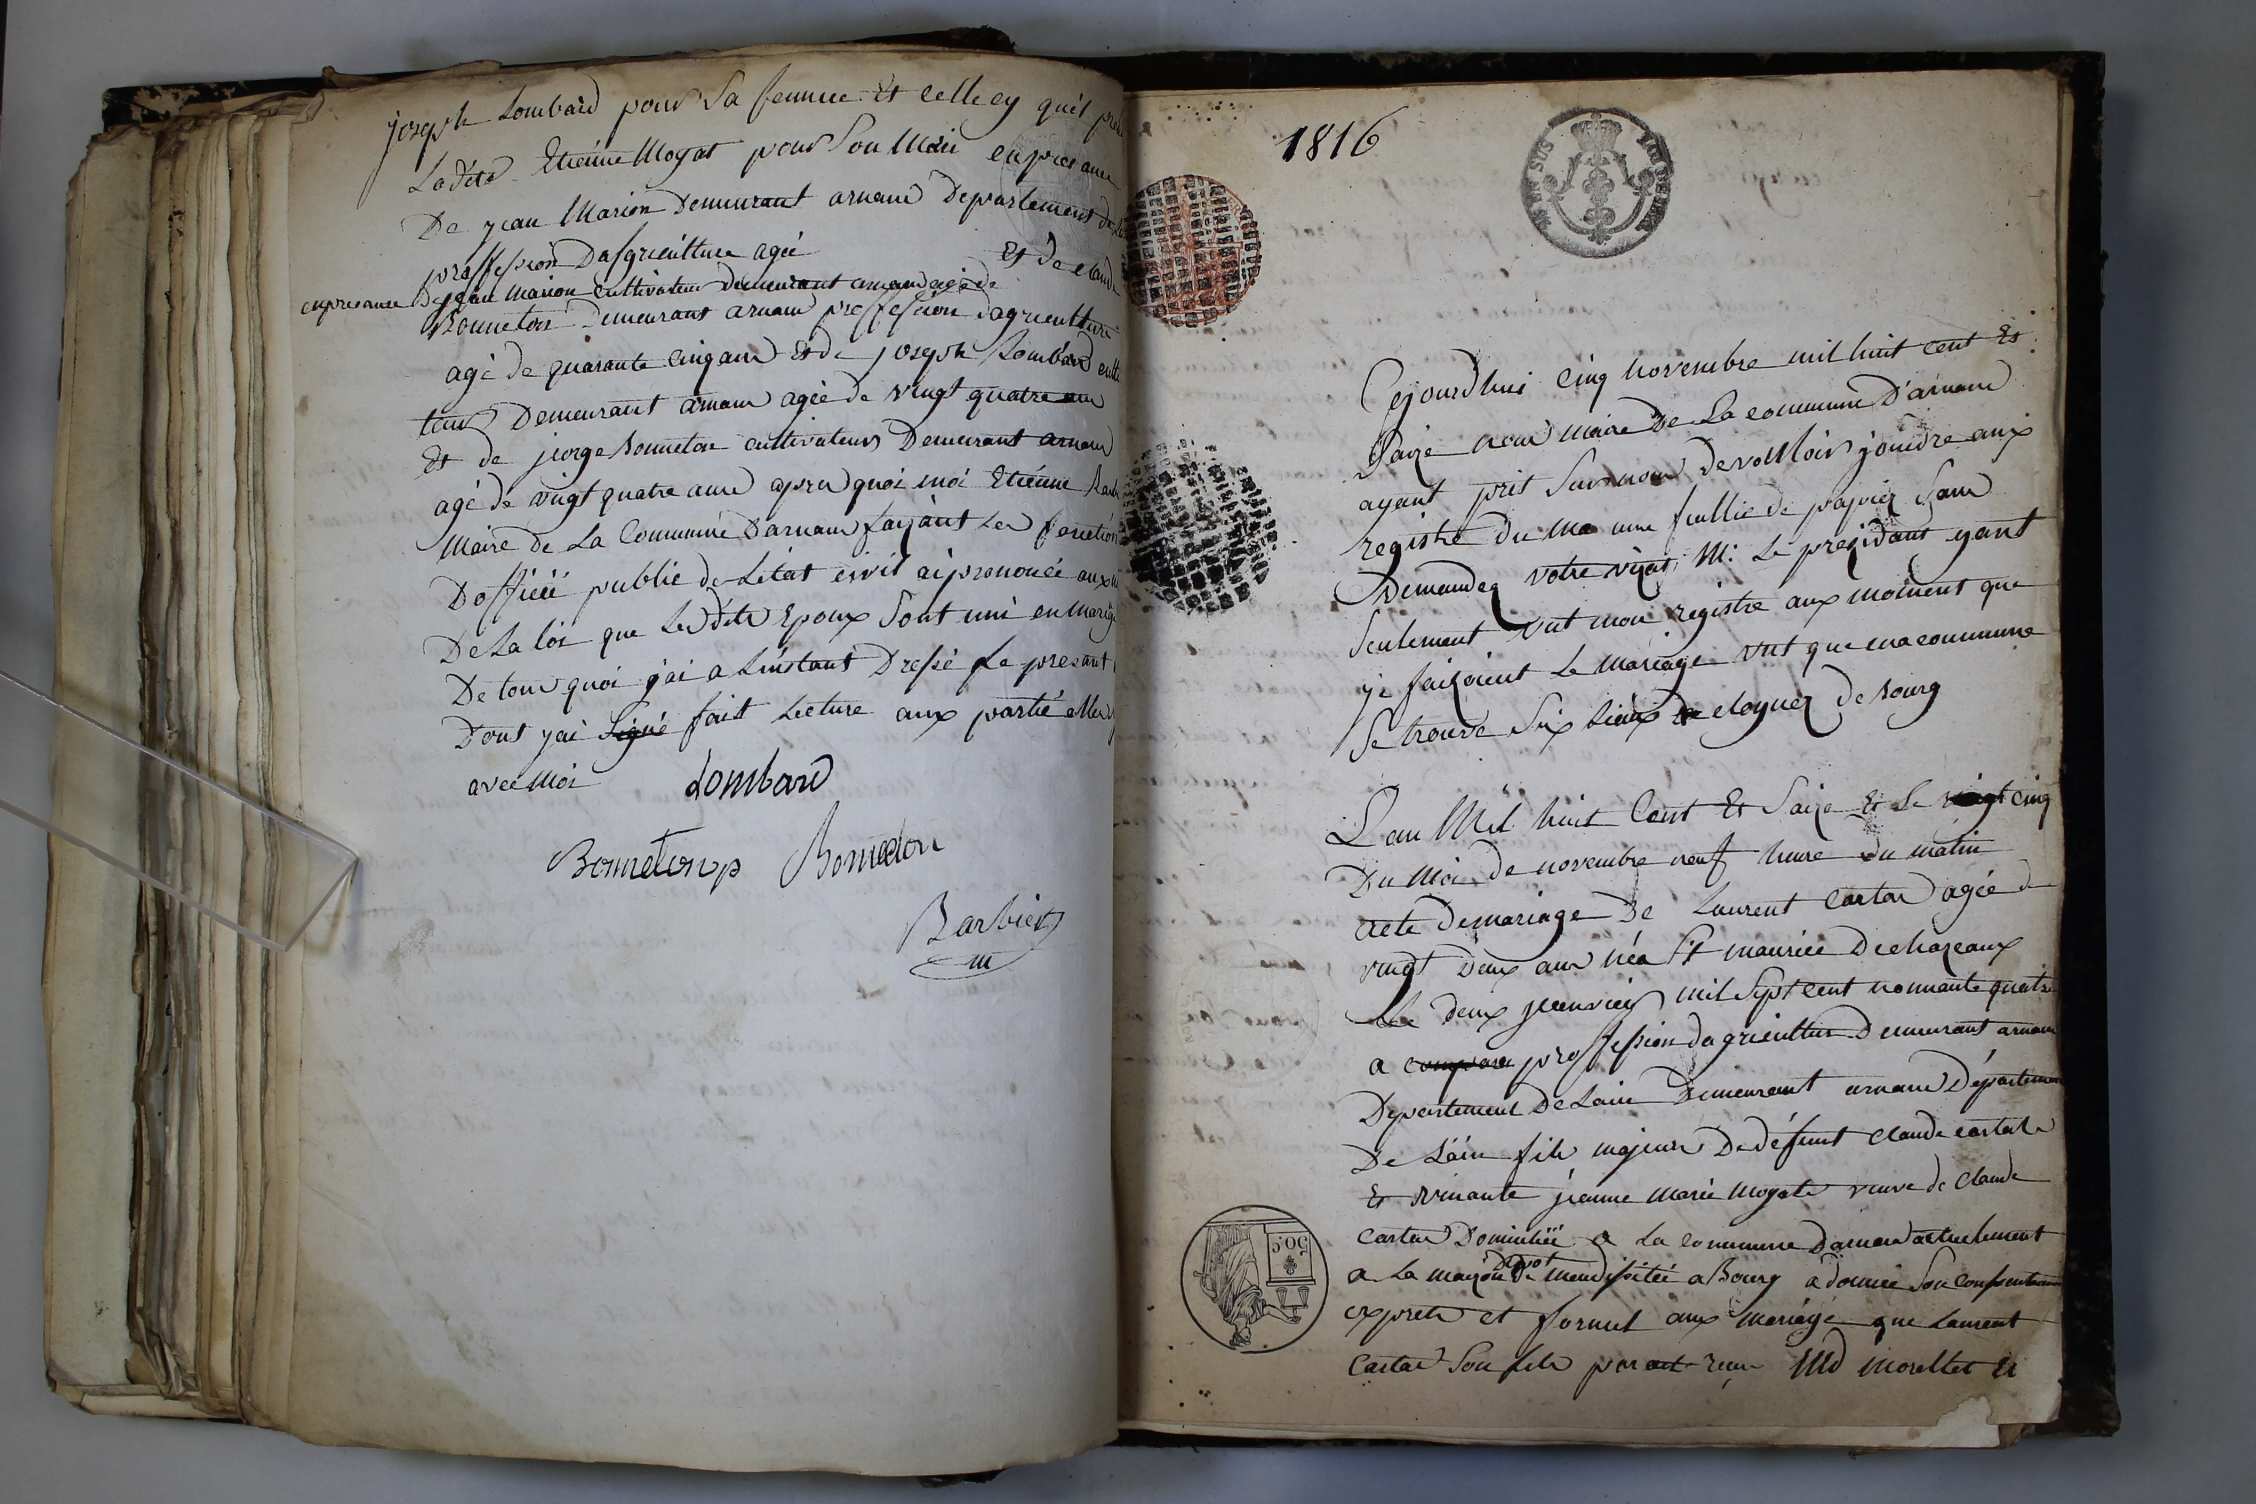 joseph Lombard pour sa femme Et celle cy quil
Ladite Etiénne Moyat pour Son Mari en presance
De jean Marion Demeurant arnans Departement de
professsion Dagriculture agée Et de claude
en presance de jean Marion Cultivateur Demeurant arnans agé de
Bonneton Demeurant arnans professsion dagriculture
agé de quarante cinq ans Et de joseph Lombard culti
teur Demeurant arnans agée de vingt quatre ans
Et de jorge Bonneton cultivateur Demeurant arnans
agé de vingt quatre ans apres quoi moi Etiénne
Maire de La Commune Darnans fayant les fonction
Dofficié public de Létat civil ai prononcé aux
De La loi que Lesdits Epoux Sont uni en Mariage
De tout quoi jai a Linstant Dressé Le presant
Dont jai Signé fait Lecture aux partié elles
avec Moi Lombard
Bonneton p Bonneton
Barbier
m
1816
Cejourdhui cinq novembre mil huit cent Et
Saize nous maire De La commune D'arnans
ayant prit Sur nous de volloir joindre aux
registre du ma une feullie de papier Sans
Demander votre vizat, M. Le prezidant yant
Seulement vut mon registre aux moment que
je faizoient Le mariage vut que ma commune
Se trouve Six Lieux eloyner de Bourg
Lan Mil huit Cent Et Saize Et Le vingt cinq
Du Moi de novembre neuf heure du matin
acte de mariage De Laurent Cartas agée de
vingt Deux ans néa St maurice Dechazeaux
Le deux jeanvier mil Sept cent nonnante quatre
a compara professsion dagricultur Demeurant arnans
Departement De Lain Demeurant arnans Département
De Láin fils majeur De défunt Claude Cartas
Et vivante jeanne Marie Moyat veuve de Claude
Cartas Domicilié a La commune Darnans actuelement
a La maizon Depot de mendissité a Bourg a donnée Son Consentement
exprets et formel aux mariage que Laurent
Cartas Son fils par act reçu Md Morellet Et
50.C